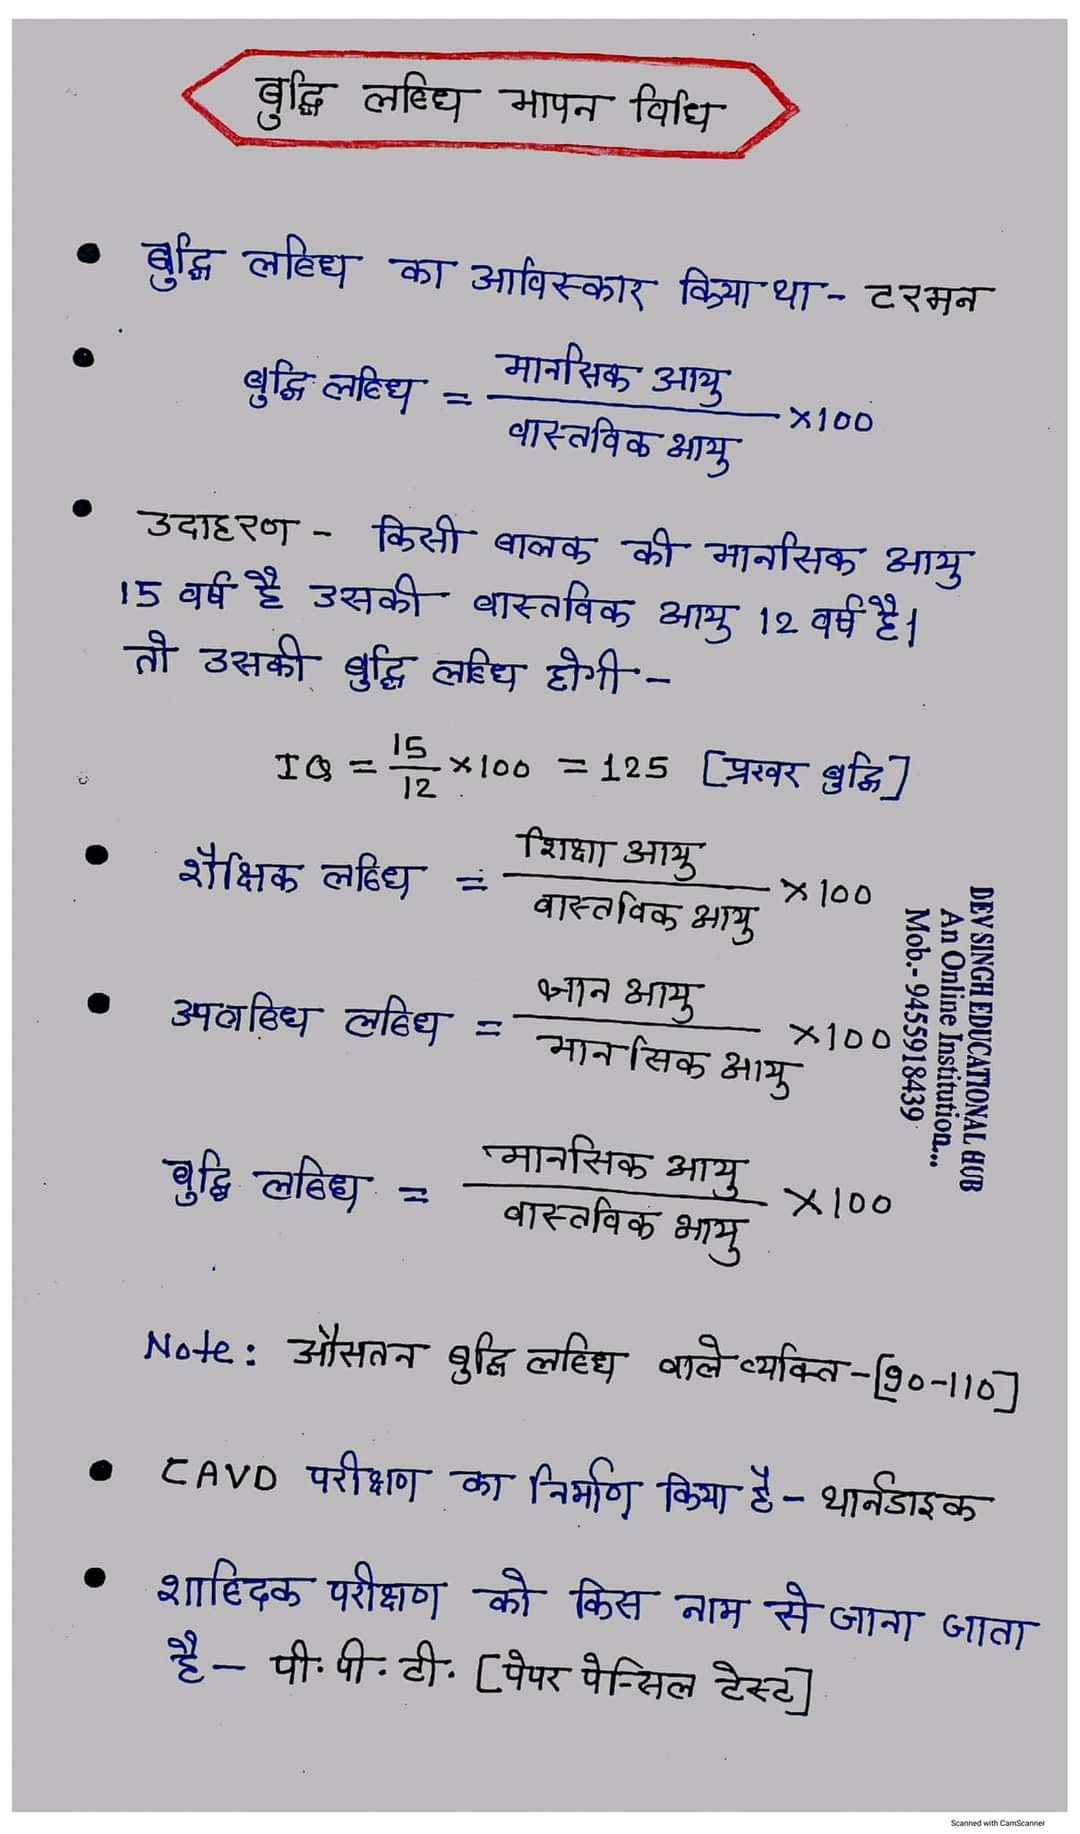 बुद्धि लब्धि मापन विधि
• बुद्धि लब्धि का आविस्कार किया था - टरमन
• बुद्धि लब्धि = मानसिक आयु / वास्तविक आयु ×100
• उदाहरण - किसी बालक की मानसिक आयु
15 वर्ष है उसकी वास्तविक आयु 12 वर्ष है।
तो उसकी बुद्धि लब्धि होगी -
IQ = 15/12 ×100 = 125 [प्रखर बुद्धि]
• शैक्षिक लब्धि = शिक्षा आयु / वास्तविक आयु ×100
• उपलब्धि लब्धि = ज्ञान आयु / मानसिक आयु ×100
बुद्धि लब्धि = मानसिक आयु / वास्तविक आयु ×100
Note: औसतन बुद्धि लब्धि वाले व्यक्ति - [90-110]
• CAVD परीक्षण का निर्माण किया है - थार्नडाइक
• शाब्दिक परीक्षण को किस नाम से जाना जाता
है - पी. पी. टी. [पेपर पेन्सिल टेस्ट]
DEV SINGH EDUCATIONAL HUB
An Online Institution...
Mob.- 9455918439
Scanned with CamScanner